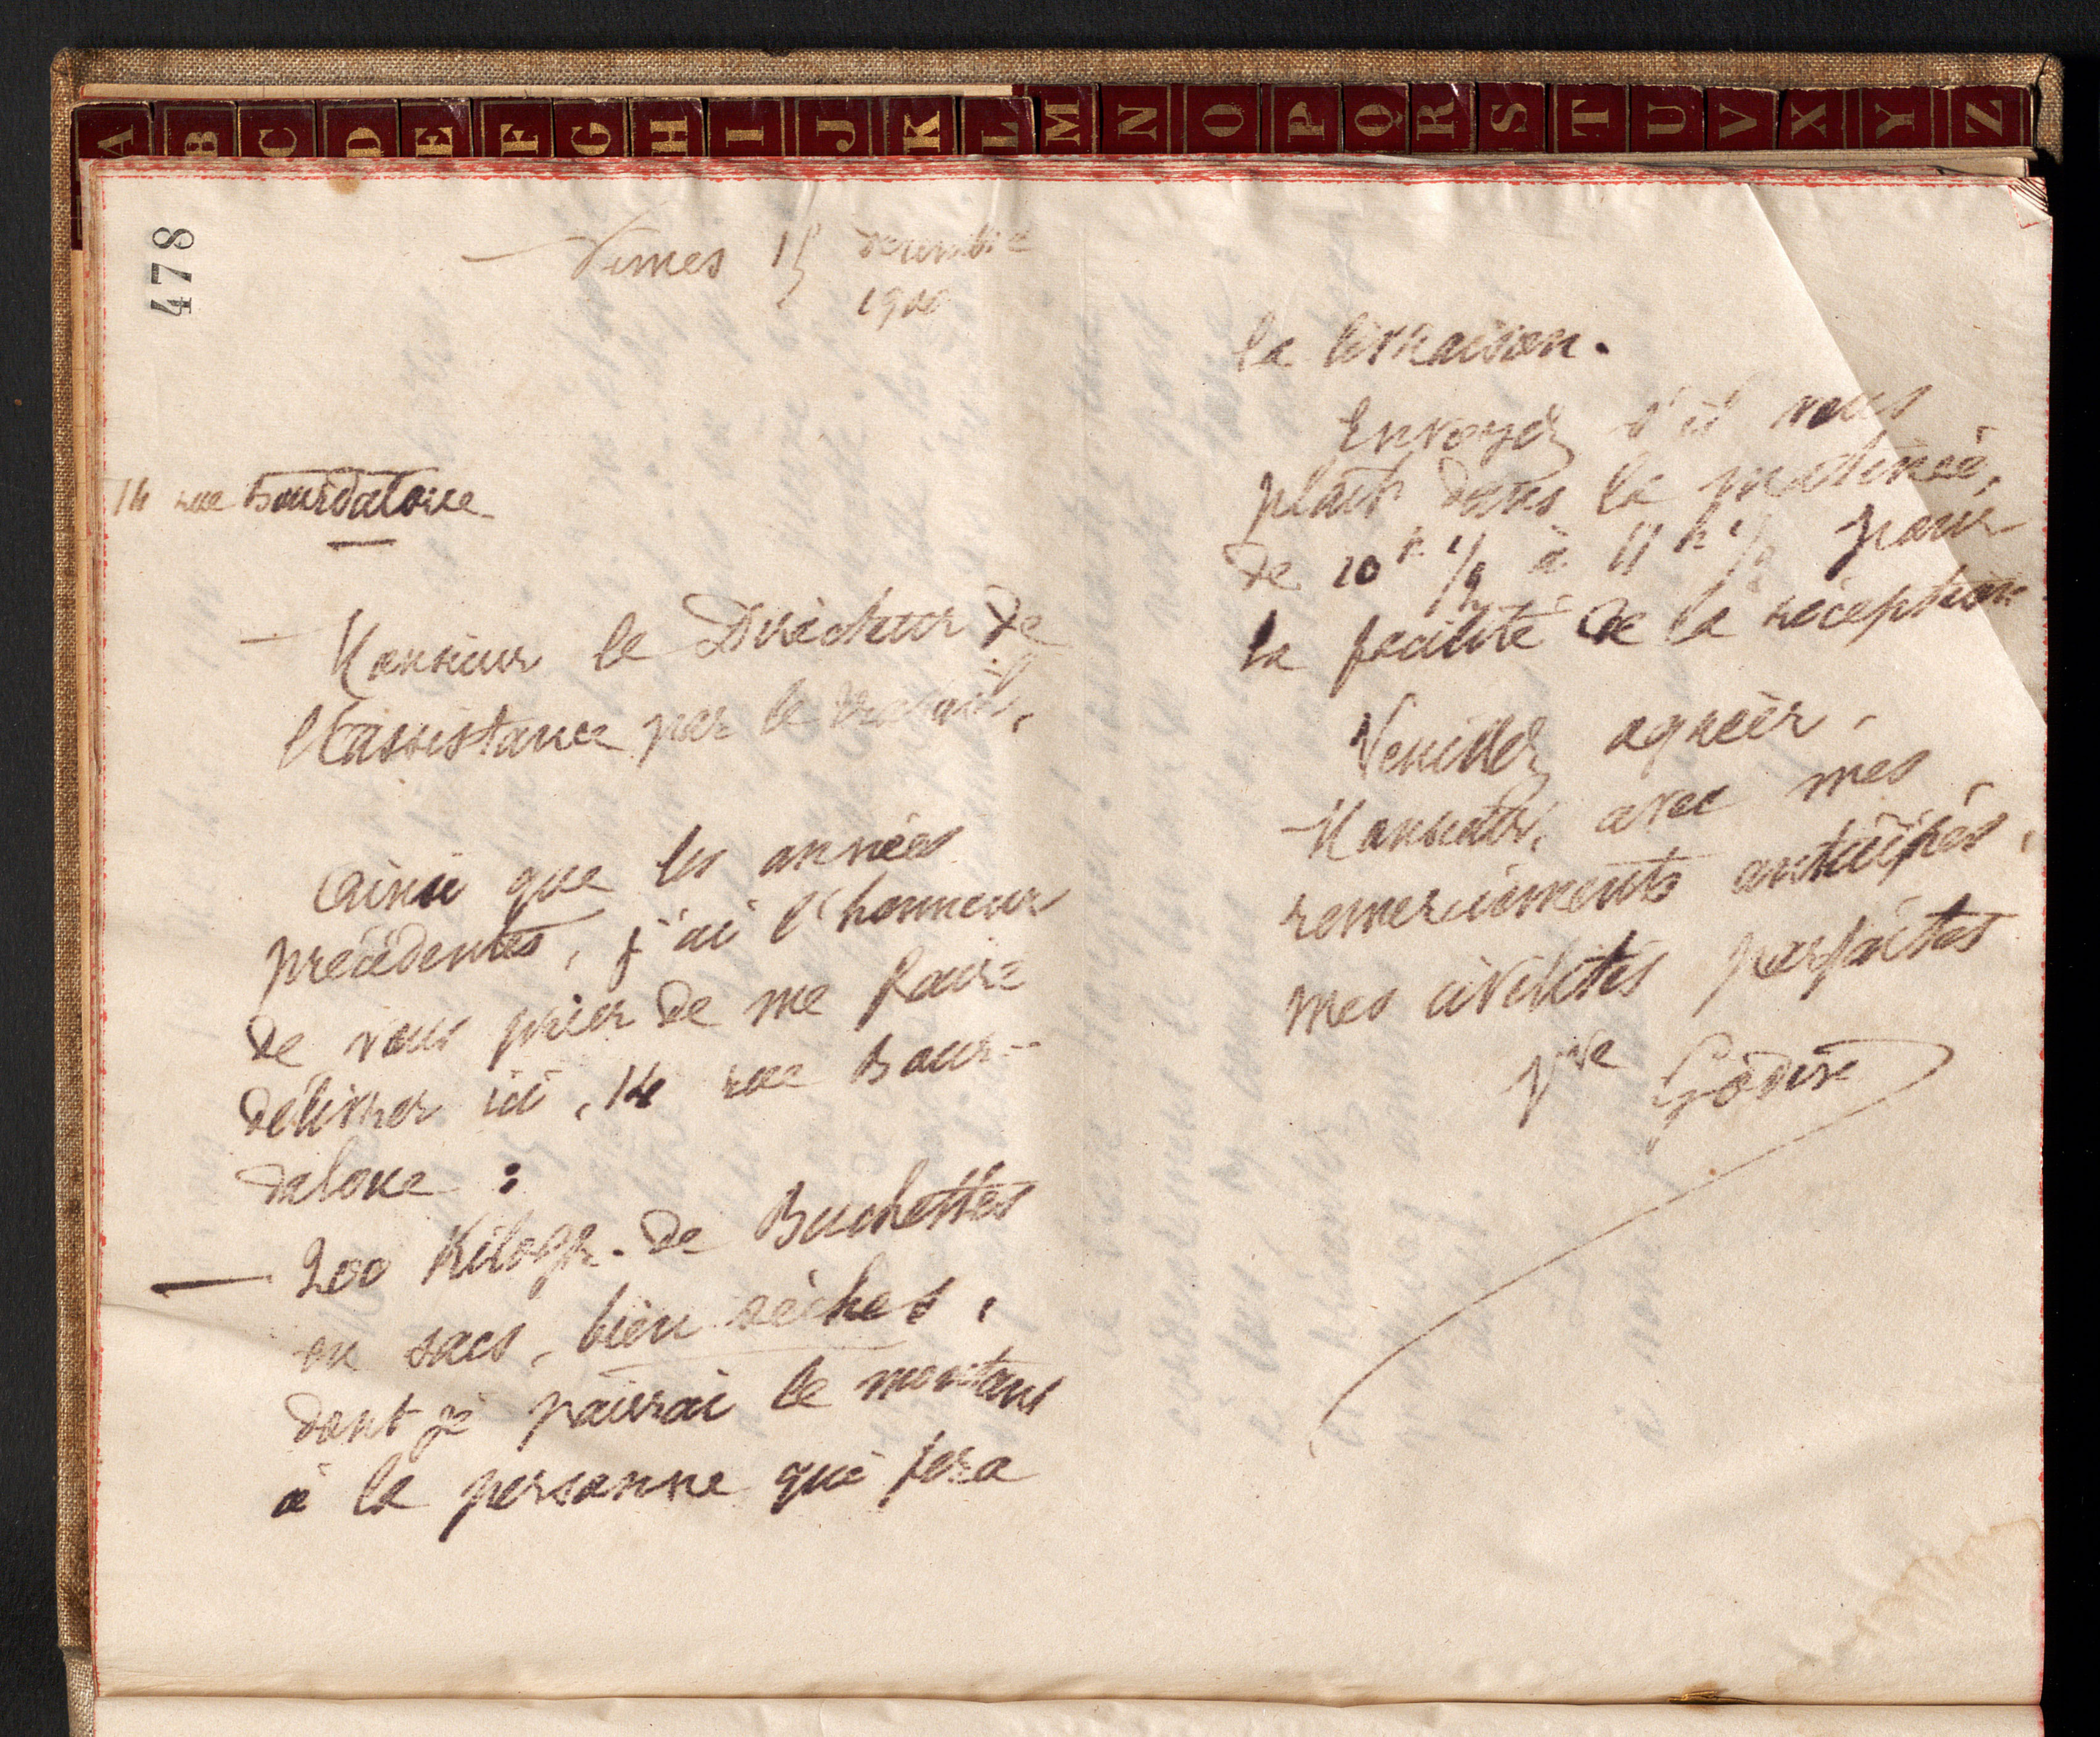 A B C D E F G H I J K L M N O P Q R S T U V X Y Z
478
Nimes 15 décembre
1900
14 rue Bourdaloue
Monsieur le Directeur de
l'assistance par le travail,
Ainsi que les années
précédentes, j'ai l'honneur
de vous prier de me faire
délivrer ici, 14 rue Bour-
daloue :
— 200 Kilogr. de Buchettes
en sacs, bien sèches,
dont je païrrai le montant
à la personne qui fera
la livraison.
Envoyez s'il vous
plait dans la matinée,
de 10 h 1/2 à 11 h 1/2 pour
la facilité de la réception
Veuillez agréér,
Monsieur, avec mes
remerciements anticipés,
mes civilités parfaites
Vve